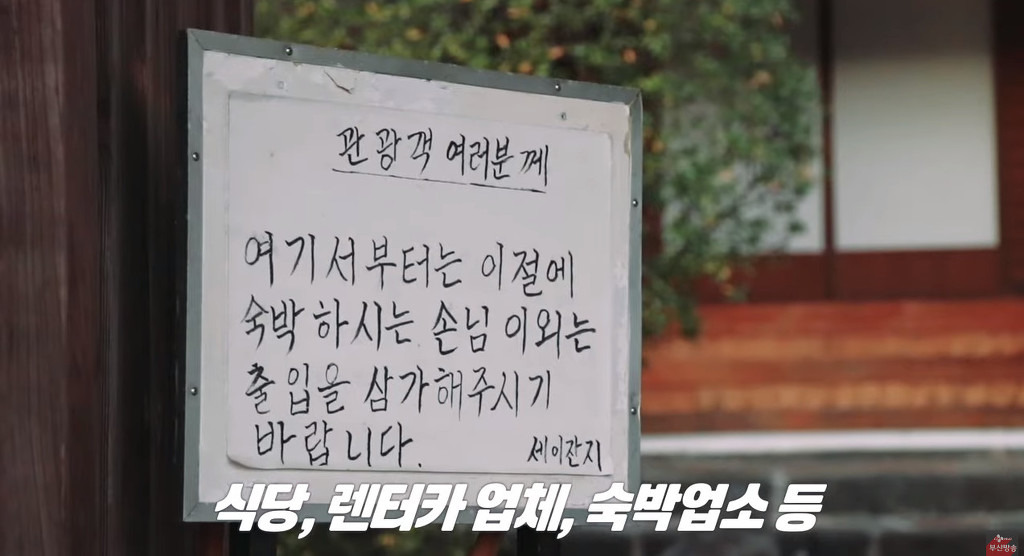 관광객 여러분께
여기서부터는 이절에
숙박하시는 손님 이외는
출입을 삼가해주시기
바랍니다.
세이잔지
식당, 렌터카 업체, 숙박업소 등
부산방송